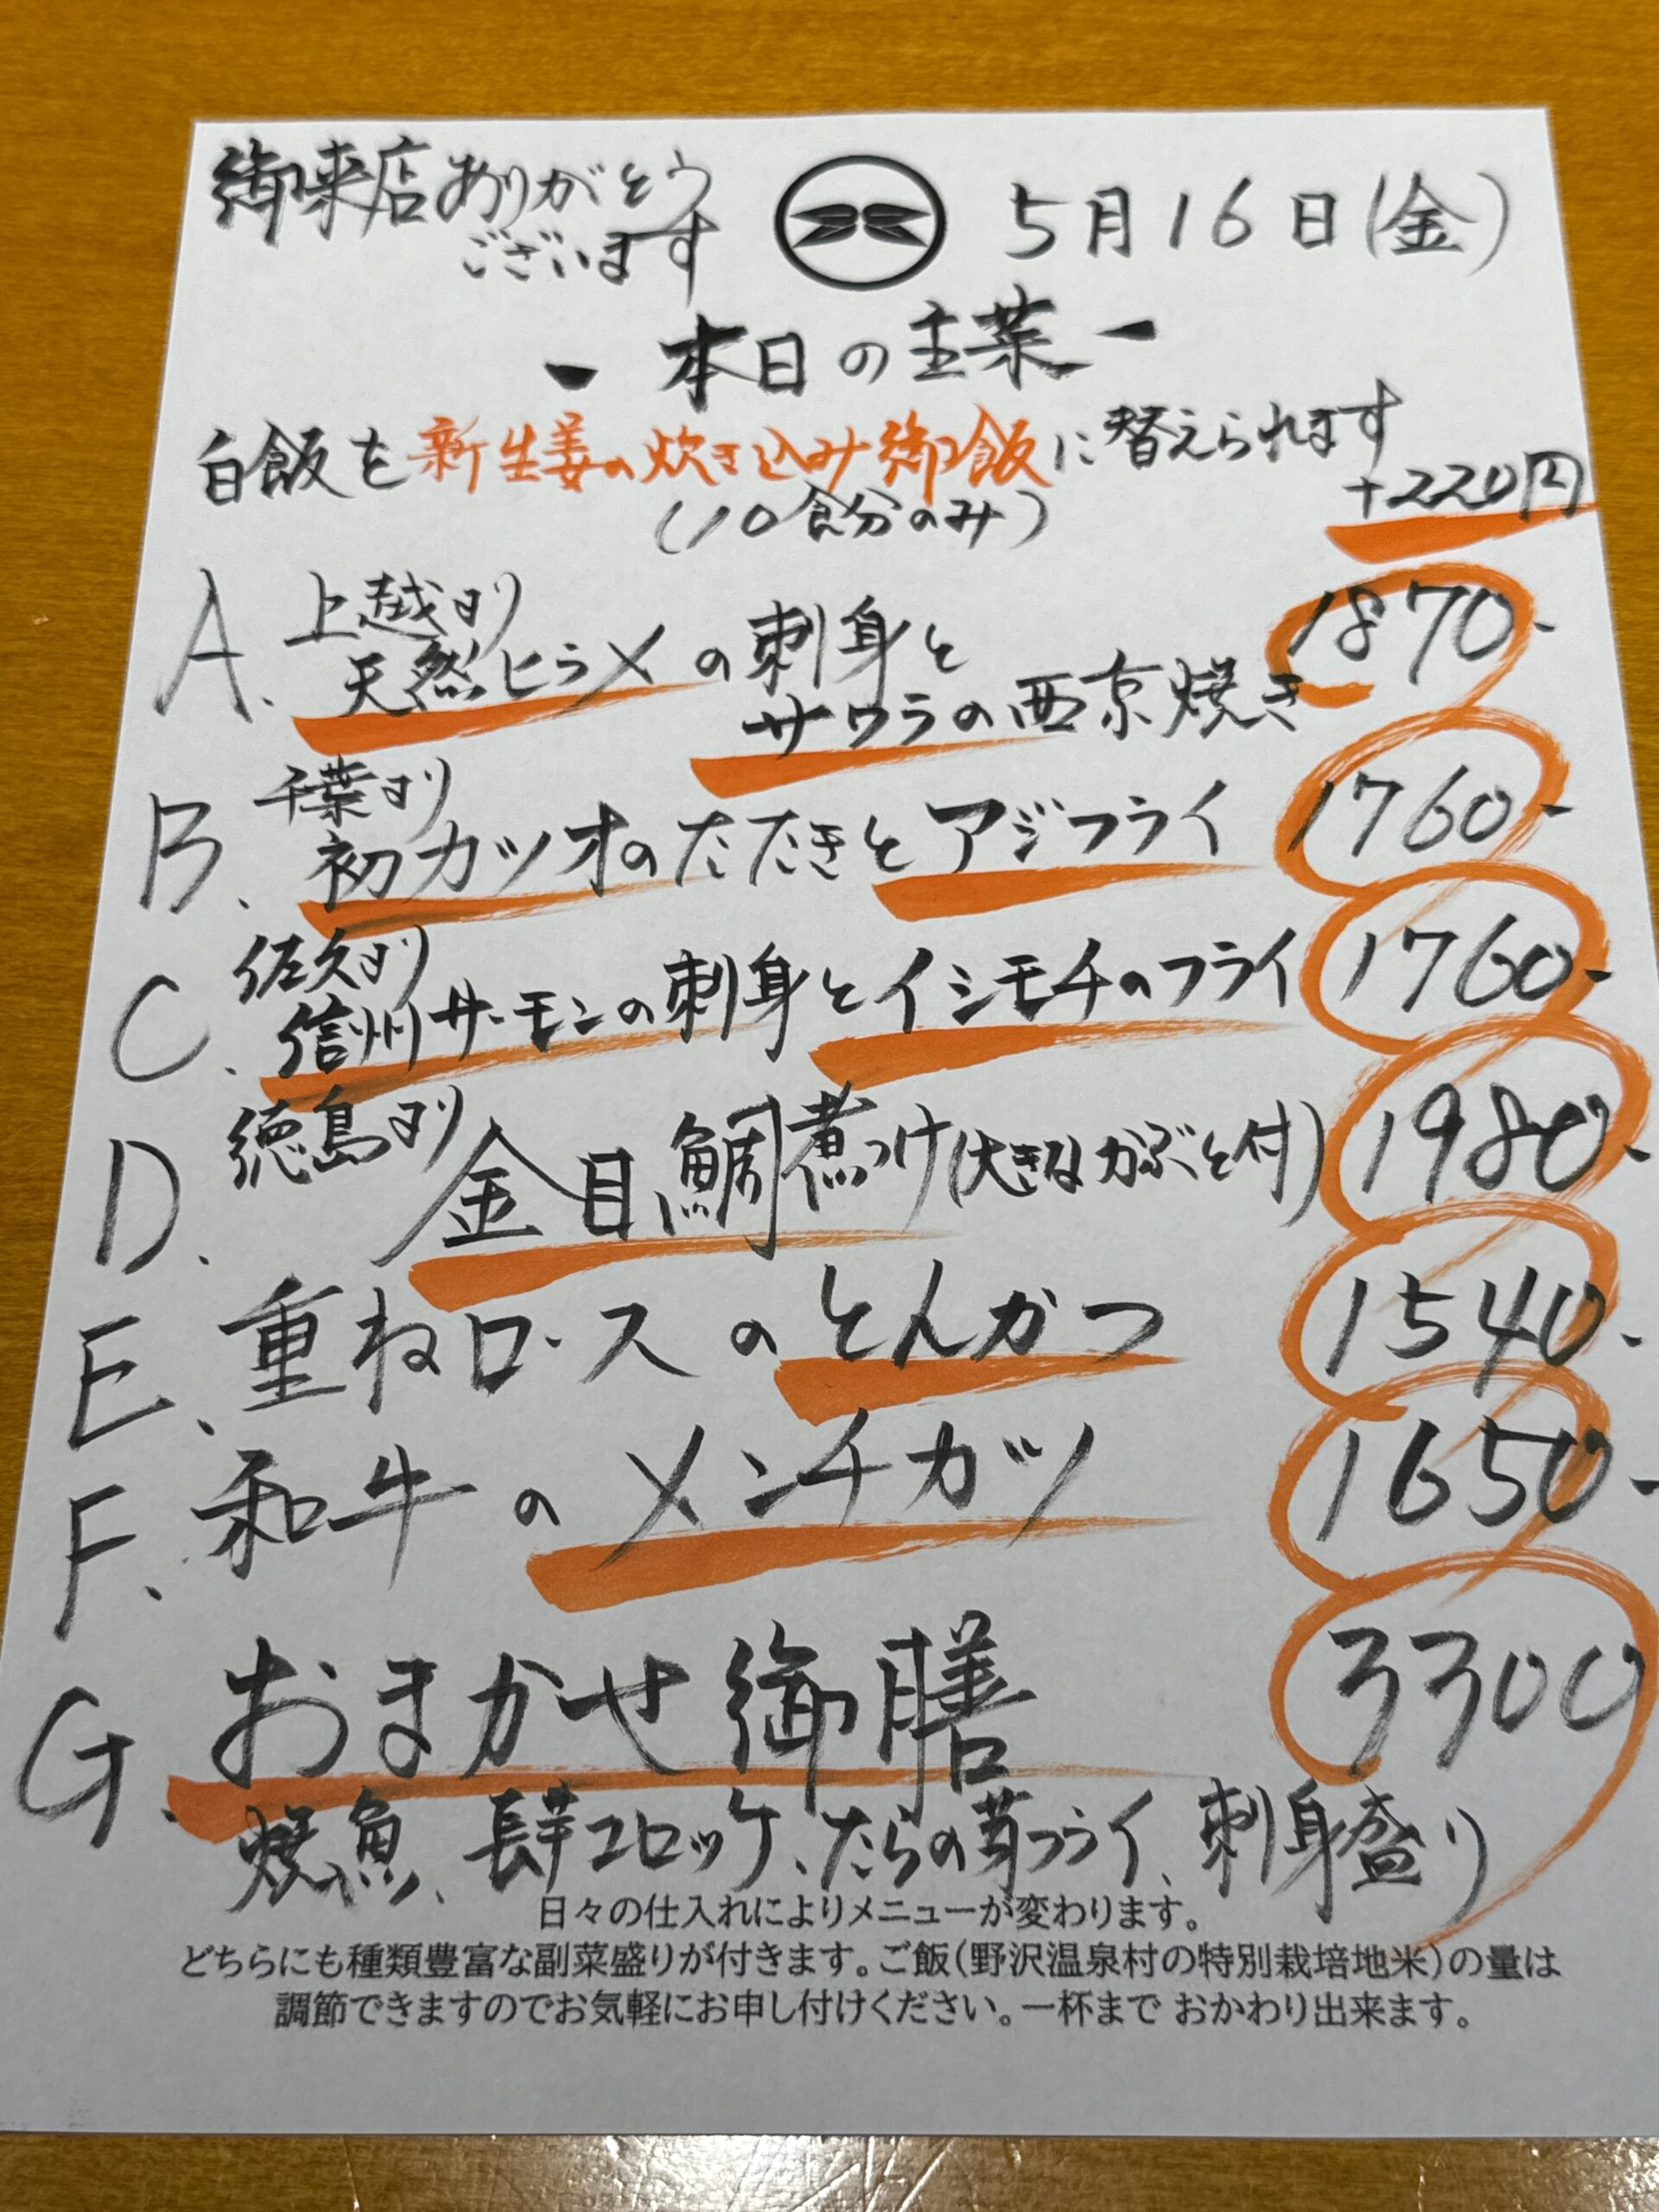 御来店ありがとう
ございます
5月16日(金)
ー本日の主菜ー
白飯を新生姜の炊き込み御飯に替えられます
+220円
(10食分のみ)
A. 上越より
天然ヒラメの刺身と
サワラの西京焼き 1870-
B. 千葉より
初カツオのたたきとアジフライ 1760-
C. 佐久より
信州サーモンの刺身とイシモチのフライ 1760-
D. 徳島より
金目鯛煮つけ(大きなかぶと付) 1980-
E. 重ねロースのとんかつ 1540-
F. 和牛のメンチカツ 1650-
G. おまかせ御膳 3300
焼魚、長芋コロッケ、たらの芽フライ、刺身盛り
日々の仕入れによりメニューが変わります。
どちらにも種類豊富な副菜盛りが付きます。ご飯(野沢温泉村の特別栽培地米)の量は
調節できますのでお気軽にお申し付けください。一杯まで おかわり出来ます。